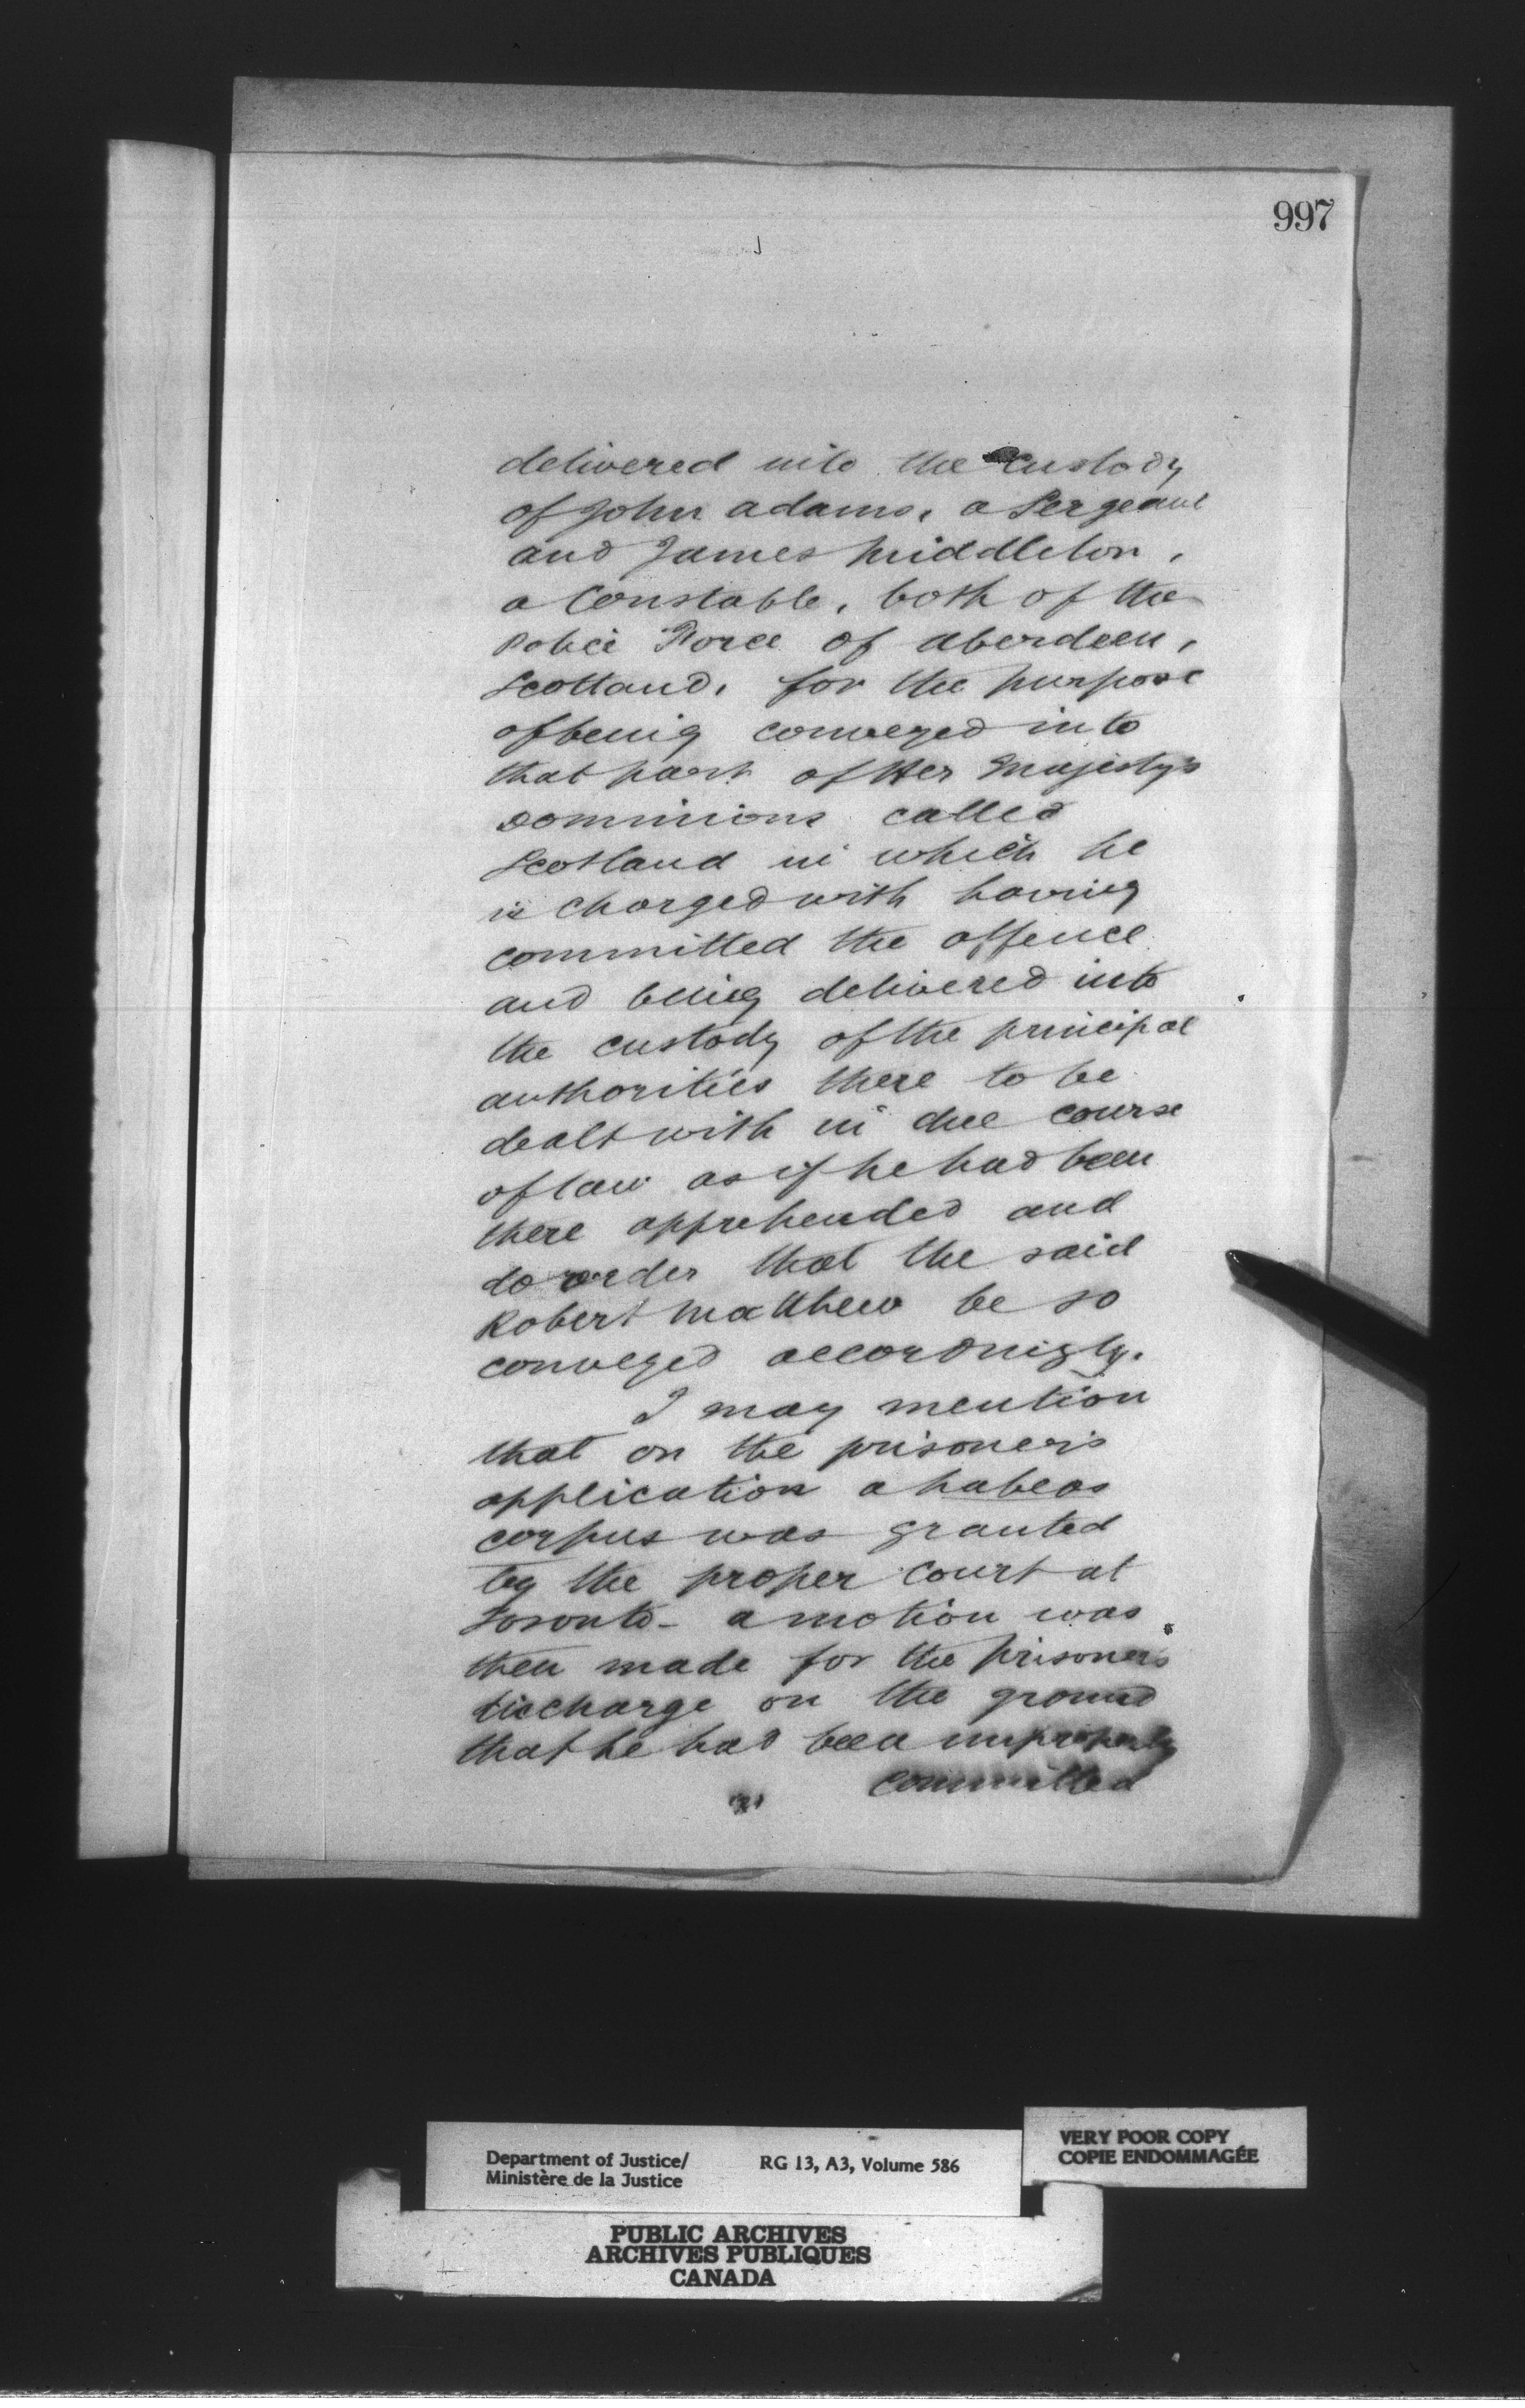 997
delivered into the custody
of John Adams, a Sergeant
and James Middleton,
a Constable, both of the
Police Force of Aberdeen,
Scotland, for the purpose
of being conveyed into
that part of Her Majesty's
Dominions called
Scotland in which he
is charged with having
committed the offence
and being delivered into
the custody of the principal
authorities there to be
dealt with in due course
of law as if he had been
there apprehended and
do order that the said
Robert Matthew be so
conveyed accordingly.
I may mention
that on the prisoner's
application a habeas
corpus was granted
by the proper Court at
Toronto - a motion was
then made for the prisoner's
discharge on the ground
that he had been improperly
committed
Department of Justice/
Ministère de la Justice
RG 13, A3, Volume 586
VERY POOR COPY
COPIE ENDOMMAGÉE
PUBLIC ARCHIVES
ARCHIVES PUBLIQUES
CANADA